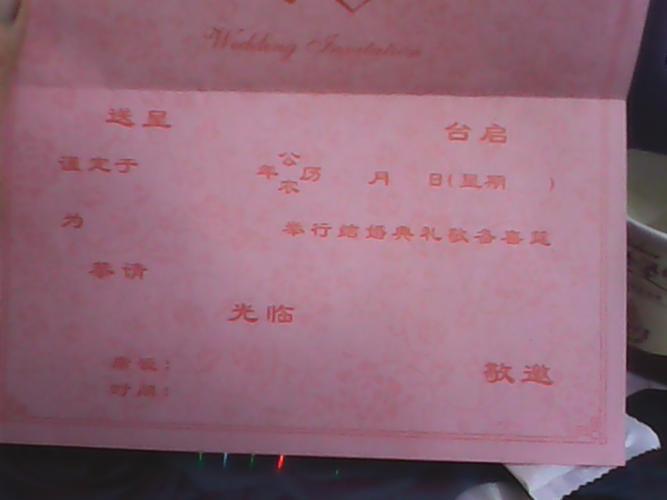 Wedding Invitation
送呈 台启
谨定于 年公历 月 日(星期 )
农
为 举行结婚典礼敬备喜筵
恭请
光临
席设:
时间:
敬邀